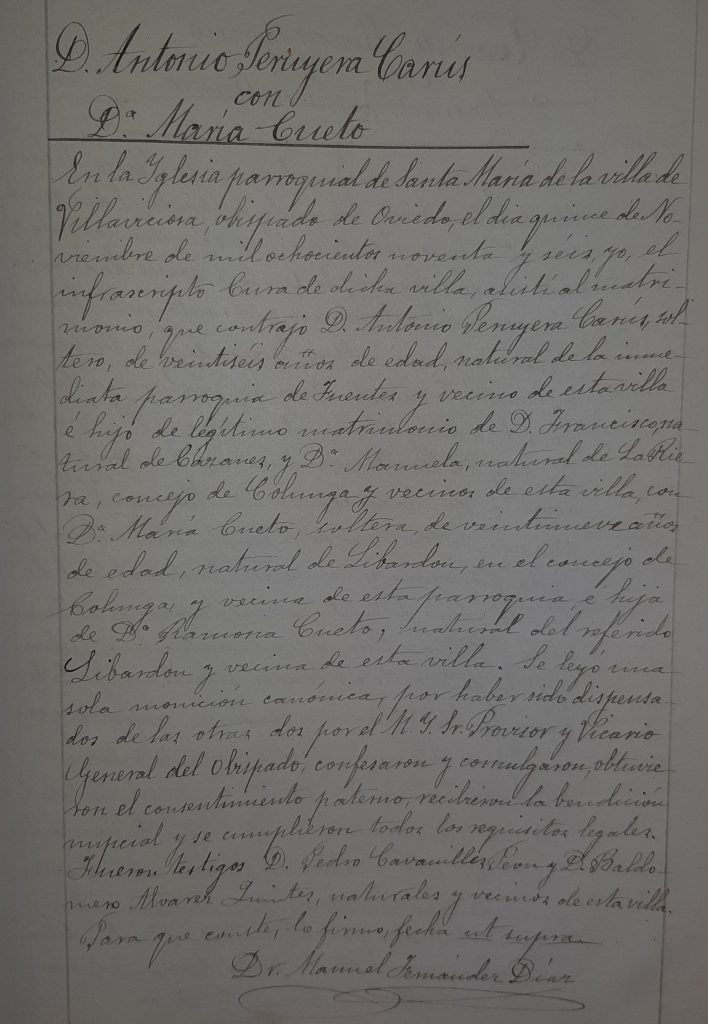 D. Antonio Peruyera Carús
con
D.ª María Cueto
En la Yglesia parroquial de Santa María de la villa de
Villaviciosa, obispado de Oviedo, el dia quince de No-
viembre de mil ochocientos noventa y séis, yo, el
infrascripto Cura de dicha villa, asistí al matri-
monio, que contrajo D. Antonio Peruyera Carús, sol-
tero, de veintiséis años de edad, natural de la inme-
diata parroquia de Fuentes y vecino de esta villa
é hijo de legítimo matrimonio de D. Francisco, na-
tural de Cazanes, y D.ª Manuela, natural de La Rie-
ra, concejo de Colunga y vecinos de esta villa, con
D.ª María Cueto, soltera, de veintinueve años
de edad, natural de Libardon, en el concejo de
Colunga, y vecina de esta parroquia, e hija
de D.ª Ramona Cueto, natural del referido
Libardon y vecina de esta villa. Se leyó una
sola monición canónica, por haber sido dispensa-
dos de las otras dos por el M. Y. Sr. Provisor y Vicario
General del Obispado, confesaron y comulgaron, obtuvie-
ron el consentimiento paterno, recibieron la bendición
nupcial y se cumplieron todos los requisitos legales.
Fueron testigos D. Pedro Cavanilles y D. Baldo-
mero Alvarez naturales y vecinos de esta villa.
Para que conste, lo firmo, fecha ut supra.
Dr. Manuel Fernández Díaz